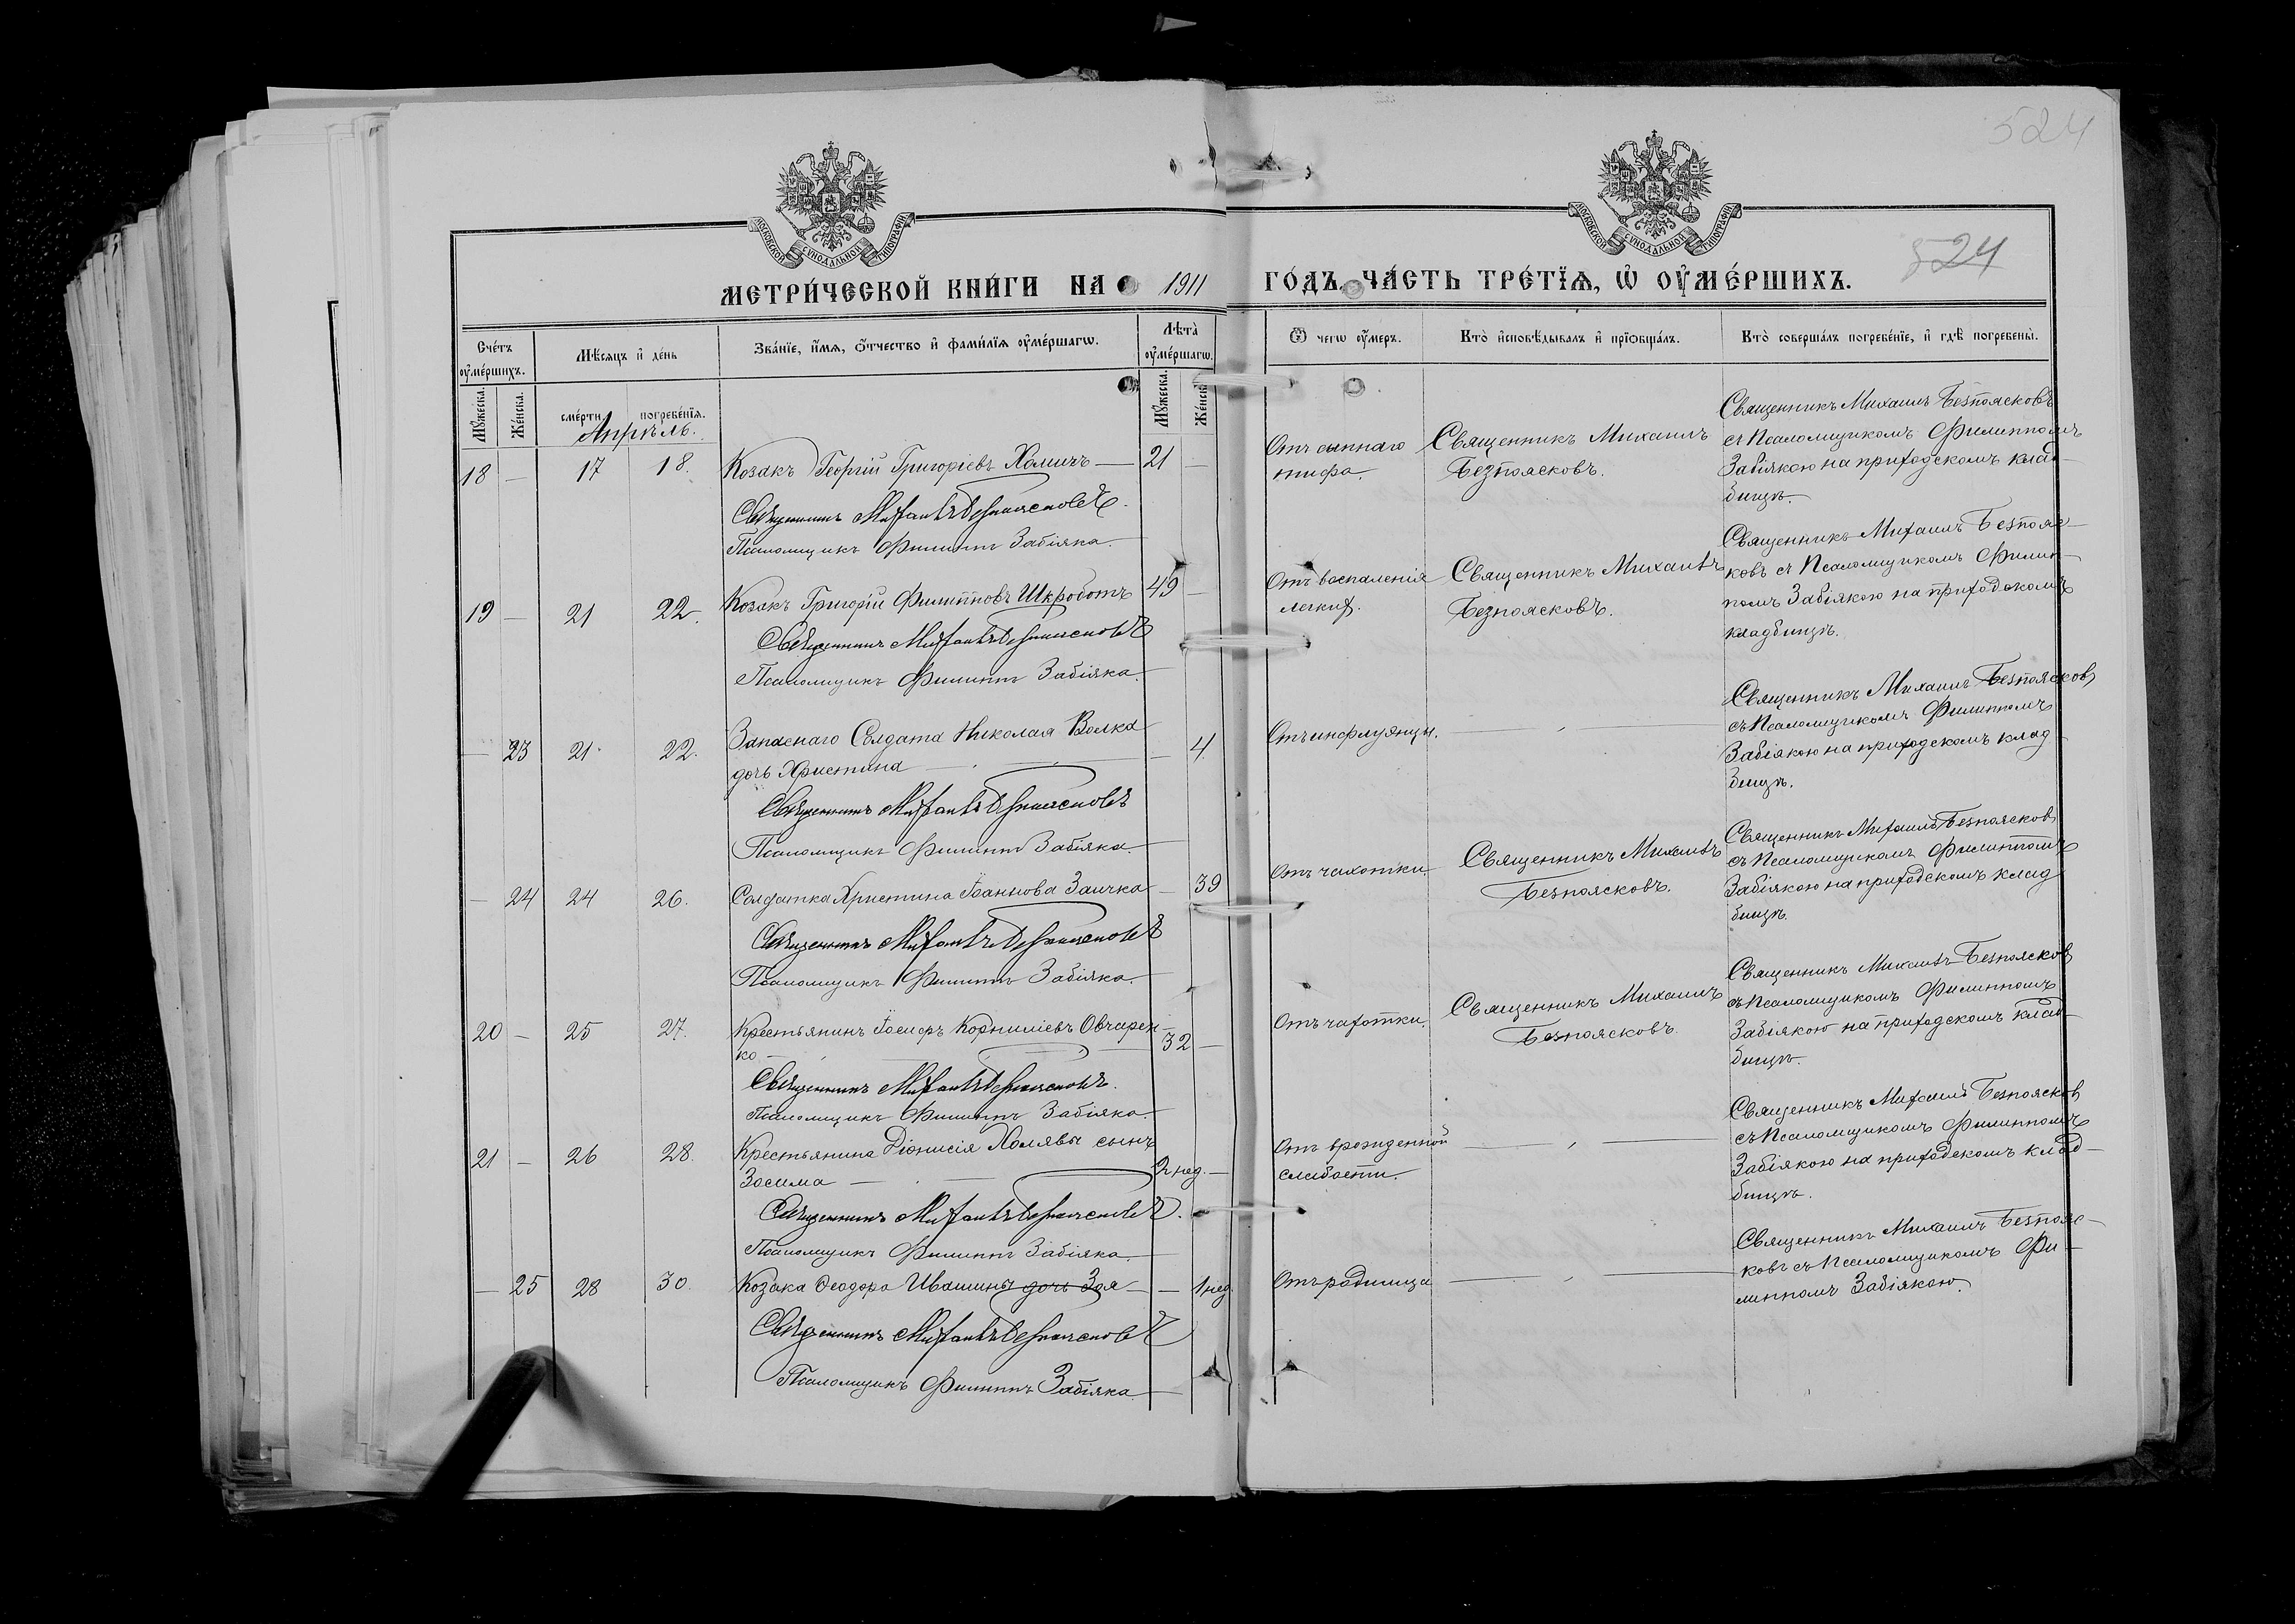 524
МОСКОВСКОЙ СѴНОДАЛЬНОЙ ТИПОГРАФІИ
МОСКОВСКОЙ СѴНОДАЛЬНОЙ ТИПОГРАФІИ
524
МЕТРИ́ЧЕСКОЙ КНИ́ГИ НА 1911 ГО́ДЪ, ЧА́СТЬ ТРЕ́ТЇѦ, Ѡ҆ ОУ҆МЕ́РШИХЪ.
Сче́тъ оу҆ме́ршихъ.
Мꙋ́жеска.
Же́нска.
Мѣ́сѧцъ и҆ де́нь
сме́рти
погребе́нїѧ.
Зва́нїе, и҆́мѧ, ѻ҆́тчество и҆ фами́лїѧ оу҆ме́ршагѡ.
Лѣ́та оу҆ме́ршагѡ.
Мꙋ́жеска.
Же́нска.
Ѿ чегѡ̀ оу҆́меръ.
Кто̀ и҆сповѣ́дывалъ и҆ прїѻбща́лъ.
Кто̀ соверша́лъ погребе́нїе, и҆ гдѣ̀ погребены̀.
Апрѣль.
18 — 17 18. Козакъ Георгій Григоріевъ Хомичъ — 21 —
Священникъ Михаилъ Безпоясковъ.
Псаломщикъ Филиппъ Забіяка.
Отъ сыпнаго
тифа.
Священникъ Михаилъ
Безпоясковъ.
Священникъ Михаилъ Безпоясковъ
съ Псаломщикомъ Филиппомъ
Забіякою на приходскомъ клад-
бищѣ.
19 — 21 22. Козакъ Григорій Филипповъ Шкроботъ 49 —
Священникъ Михаилъ Безпоясковъ
Псаломщикъ Филиппъ Забіяка.
Отъ воспаленія
легкихъ.
Священникъ Михаилъ
Безпоясковъ.
Священникъ Михаилъ Безпояс-
ковъ съ Псаломщикомъ Филип-
помъ Забіякою на приходскомъ
кладбищѣ.
— 23 21 22. Запаснаго Солдата Николая Волка
дочь Христина — — 4.
Священникъ Михаилъ Безпоясковъ
Псаломщикъ Филиппъ Забіяка.
Отъ инфлуянцы.
Священникъ Михаилъ Безпоясковъ
съ Псаломщикомъ Филиппомъ
Забіякою на приходскомъ клад-
бищѣ.
— 24 24 26. Солдатка Христина Іоаннова Заичка — 39
Священникъ Михаилъ Безпоясковъ
Псаломщикъ Филиппъ Забіяка.
Отъ чахотки.
Священникъ Михаилъ
Безпоясковъ.
Священникъ Михаилъ Безпоясковъ
съ Псаломщикомъ Филиппомъ
Забіякою на приходскомъ клад
бищѣ.
20 — 25 27. Крестьянинъ Іосифъ Корниліевъ Овчарен-
ко — 32 —
Священникъ Михаилъ Безпоясковъ.
Псаломщикъ Филиппъ Забіяка.
Отъ чахотки.
Священникъ Михаилъ
Безпоясковъ.
Священникъ Михаилъ Безпоясков
съ Псаломщикомъ Филиппомъ
Забіякою на приходскомъ клад-
бищѣ.
21 — 26 28. Крестьянина Діонисія Холявы сынъ
Зосима — 2 нед. —
Священникъ Михаилъ Безпоясковъ.
Псаломщикъ Филиппъ Забіяка.
Отъ врожденной
слабости.
Священникъ Михаилъ Безпоясков
съ Псаломщикомъ Филиппомъ
Забіякою на приходскомъ клад-
бищѣ.
— 25 28 30. Козака Ѳеодора Ивашины дочь Зоя — — 1 нед.
Священникъ Михаилъ Безпоясковъ
Псаломщикъ Филиппъ Забіяка
Отъ родимца
Священникъ Михаилъ Безпояс-
ковъ съ Псаломщикомъ Фи-
липпомъ Забіякою.